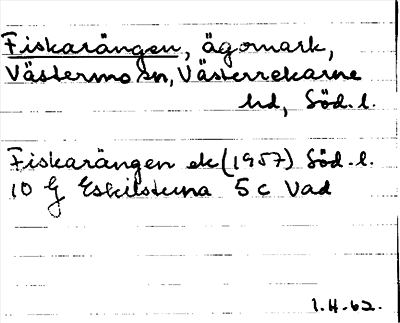 Fiskarängen, ägomark,
Västermo sn, Västerrekarne
hd, Söd. l.
Fiskarängen ek (1957) Söd. l.
10 G Eskilstuna 5 c Vad
1.H.62.